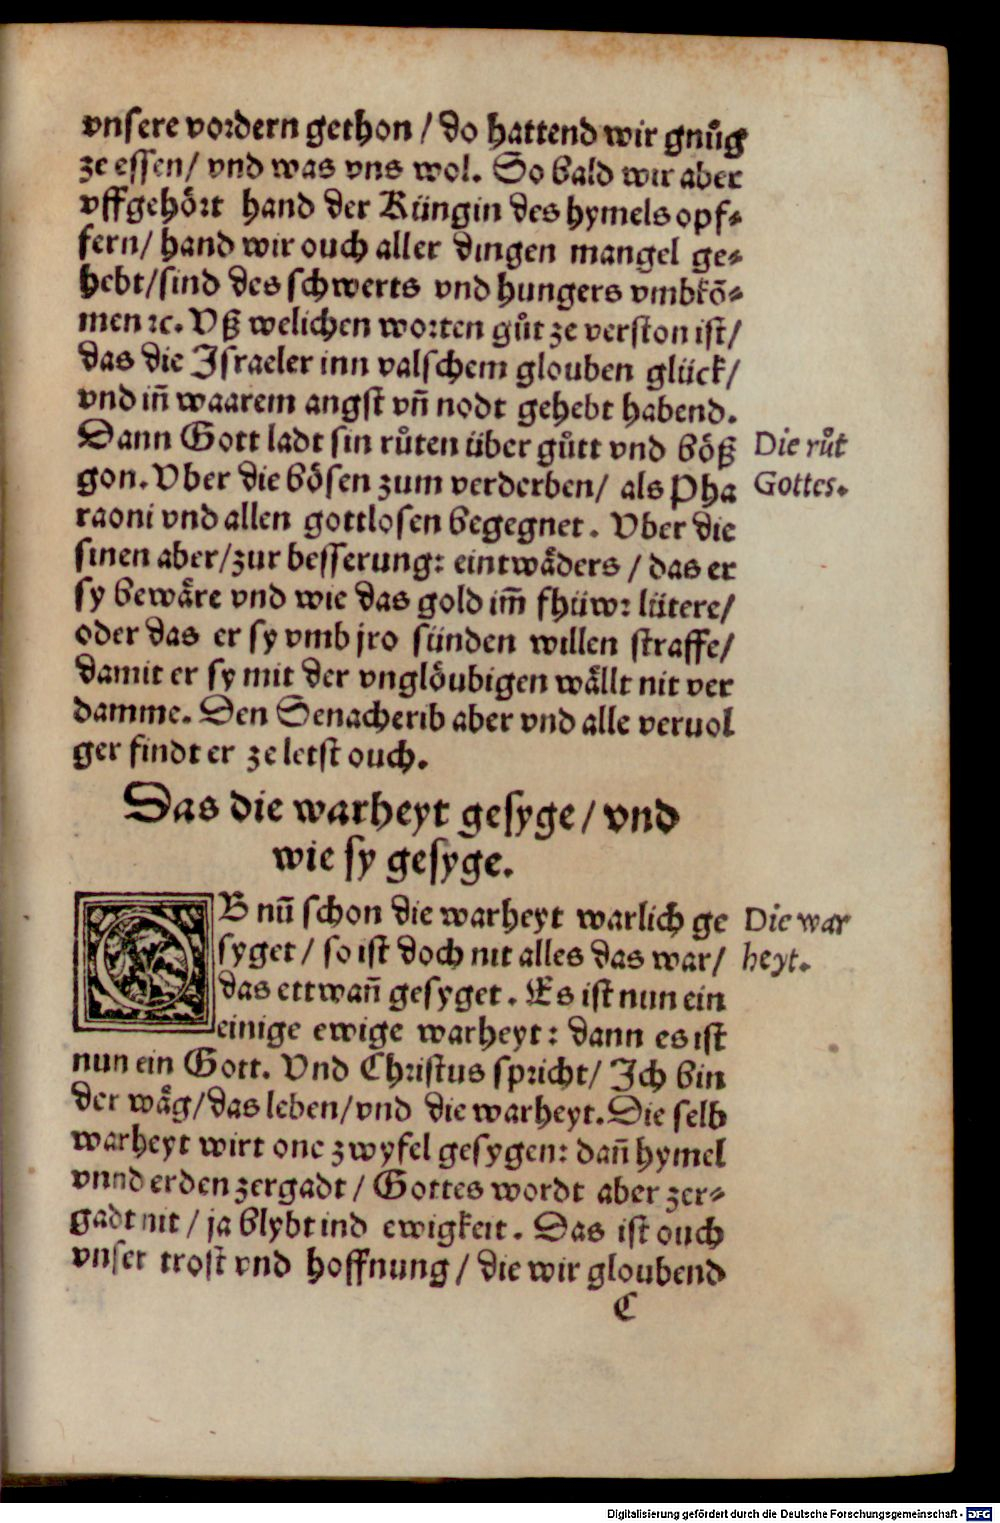 vnsere vordern gethon / do hattend wir gnůg
ze essen / vnd was vns wol. So bald wir aber
vffgehört hand der Küngin des hymels opf⸗
fern / hand wir ouch aller dingen mangel ge⸗
hebt / sind des schwerts vnd hungers vmbkõ⸗
men ꝛc. Vß welichen worten gůt ze verston ist /
das die Israeler inn valschem glouben glück /
vnd iñ waarem angst vñ nodt gehebt habend.
Dann Gott ladt sin růten über gůtt vnd böß
Die růt
gon. Vber die bösen zum verderben / als Pha
Gottes.
raoni vnd allen gottlosen begegnet. Vber die
sinen aber / zur besserung: eintwåders / das er
sy bewåre vnd wie das gold im̃ fhüwr lütere /
oder das er sy vmb jro sünden willen straffe /
damit er sy mit der vnglöubigen wållt nit ver
damme. Den Senacherib aber vnd alle veruol
ger findt er ze letst ouch.
Das die warheyt gesyge / vnd
wie sy gesyge.
OB nũ schon die warheyt warlich ge
Die war
syget / so ist doch nit alles das war /
heyt.
das ettwañ gesyget. Es ist nun ein
einige ewige warheyt: dann es ist
nun ein Gott. Vnd Christus spricht / Ich bin
der wåg / das leben / vnd die warheyt. Die selb
warheyt wirt one zwyfel gesygen: dañ hymel
vnnd erden zergadt / Gottes wordt aber zer⸗
gadt nit / ja blybt ind ewigkeit. Das ist ouch
vnser trost vnd hoffnung / die wir gloubend
C
Digitalisierung gefördert durch die Deutsche Forschungsgemeinschaft - DFG